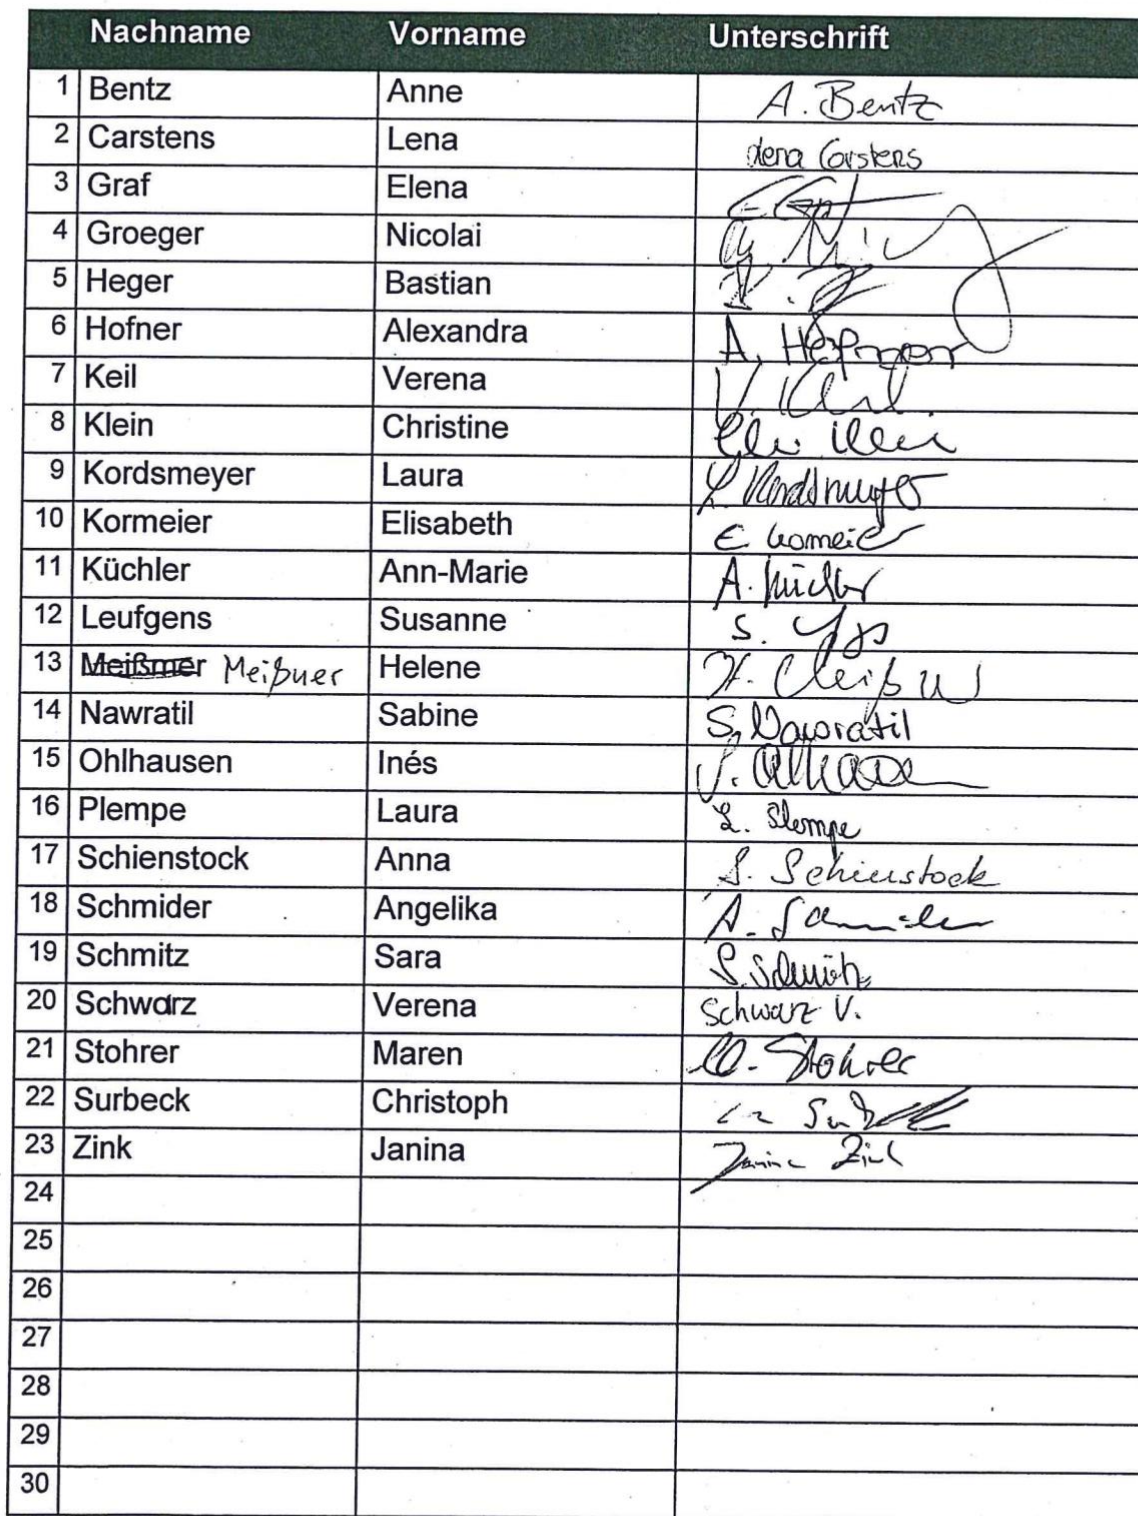 Nachname Vorname Unterschrift
1 Bentz Anne A. Bentz
2 Carstens Lena Lena Carstens
3 Graf Elena
4 Groeger Nicolai
5 Heger Bastian
6 Hofner Alexandra A. Hofner
7 Keil Verena V. Keil
8 Klein Christine
9 Kordsmeyer Laura L. Kordsmeyer
10 Kormeier Elisabeth E Kormeier
11 Küchler Ann-Marie A. Küchler
12 Leufgens Susanne S.
13 Meißmer Meißner Helene H. Meißner
14 Nawratil Sabine S. Nawratil
15 Ohlhausen Inés
16 Plempe Laura L. Plempe
17 Schienstock Anna S. Schienstock
18 Schmider Angelika A. Schmider
19 Schmitz Sara S. Schmitz
20 Schwarz Verena Schwarz V.
21 Stohrer Maren M. Stohrer
22 Surbeck Christoph
23 Zink Janina Janina Zink
24
25
26
27
28
29
30